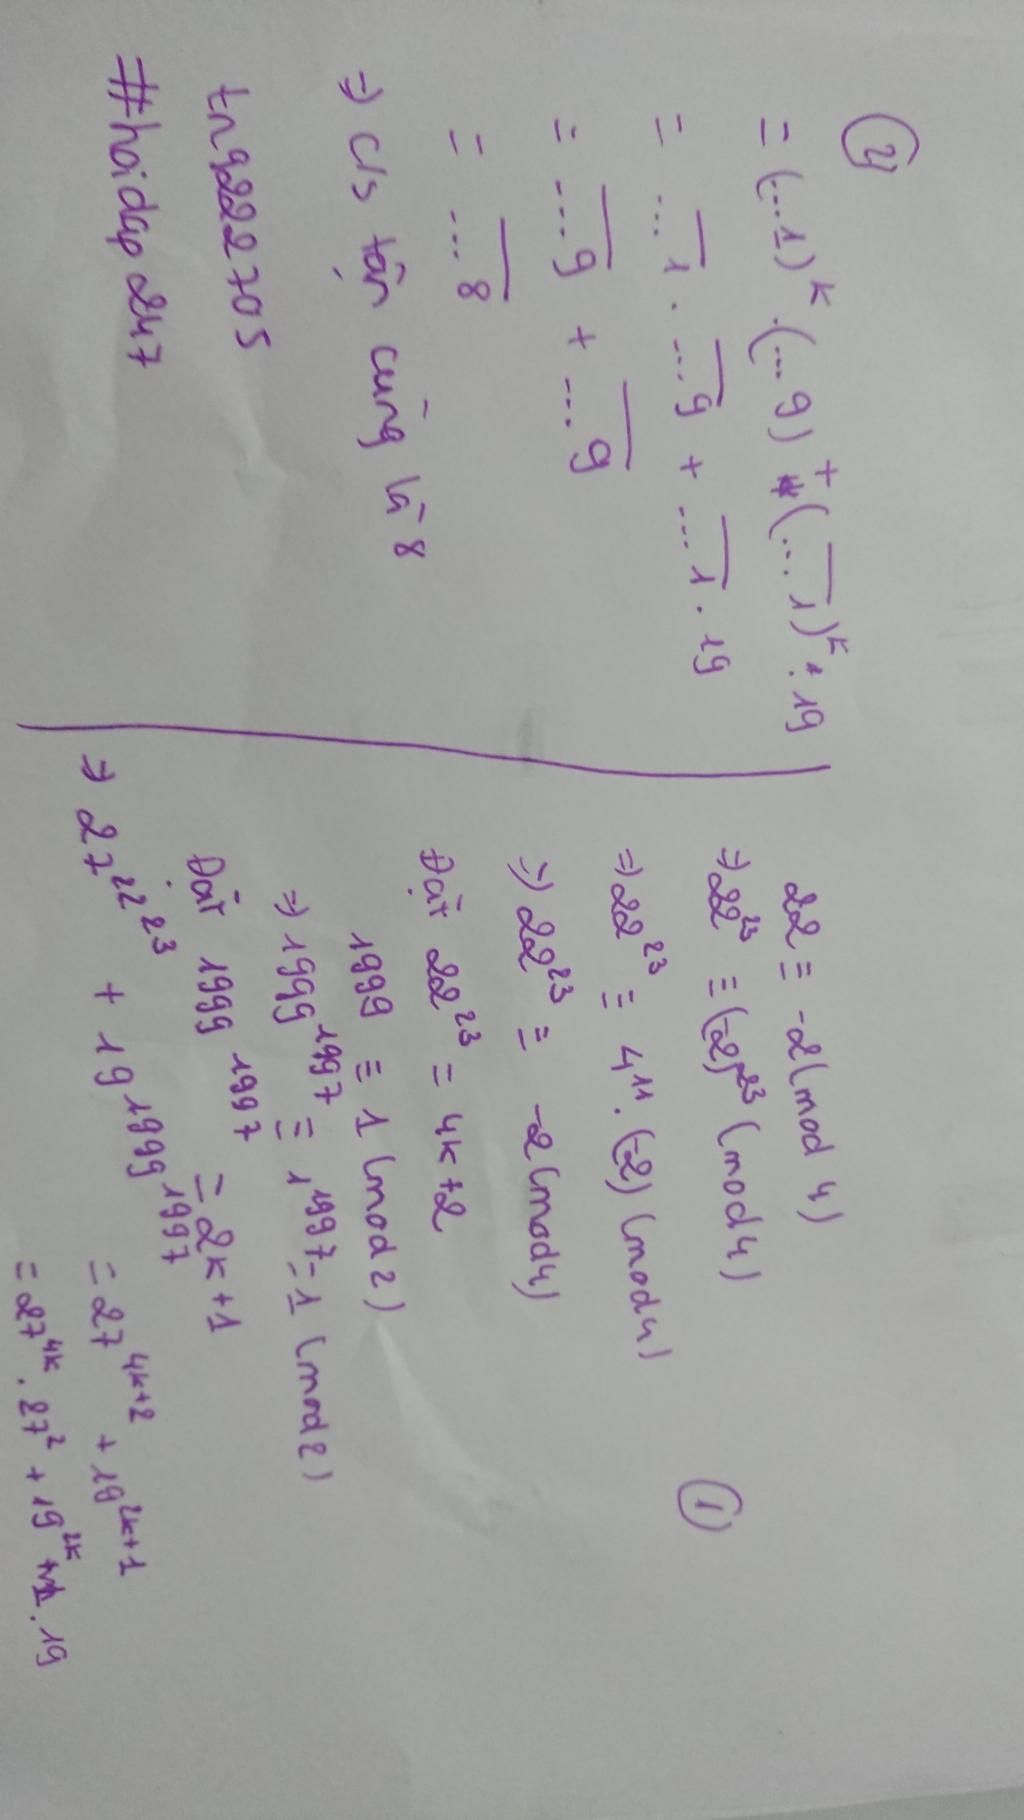 ①
22 ≡ -2 (mod 4)
=> 22^23 ≡ (-2)^23 (mod 4)
=> 22^23 ≡ 4^11 . (-2) (mod 4)
=> 22^23 ≡ -2 (mod 4)
Đặt 22^23 = 4k+2
1999 ≡ 1 (mod 2)
=> 1999^1997 ≡ 1^1997 = 1 (mod 2)
Đặt 1999^1997 = 2k+1
=> 27^22^23 + 19^1999^1997 = 27^(4k+2) + 19^(2k+1)
= 27^4k . 27^2 + 19^2k . 19
②
= (...1)^k . (...9) + (...1)^k . 19
= ...1 . ...9 + ...1 . 19
= ...9 + ...9
= ...8
=> c/s tận cùng là 8
tng222705
#hoidap247